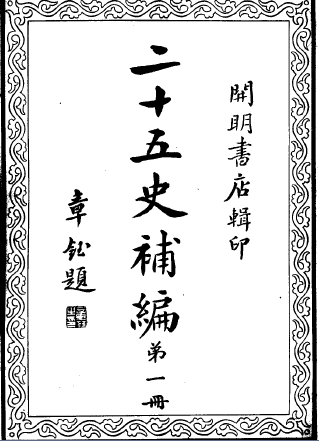 開明書店輯印
二十五史補編 第一冊
章鈺題